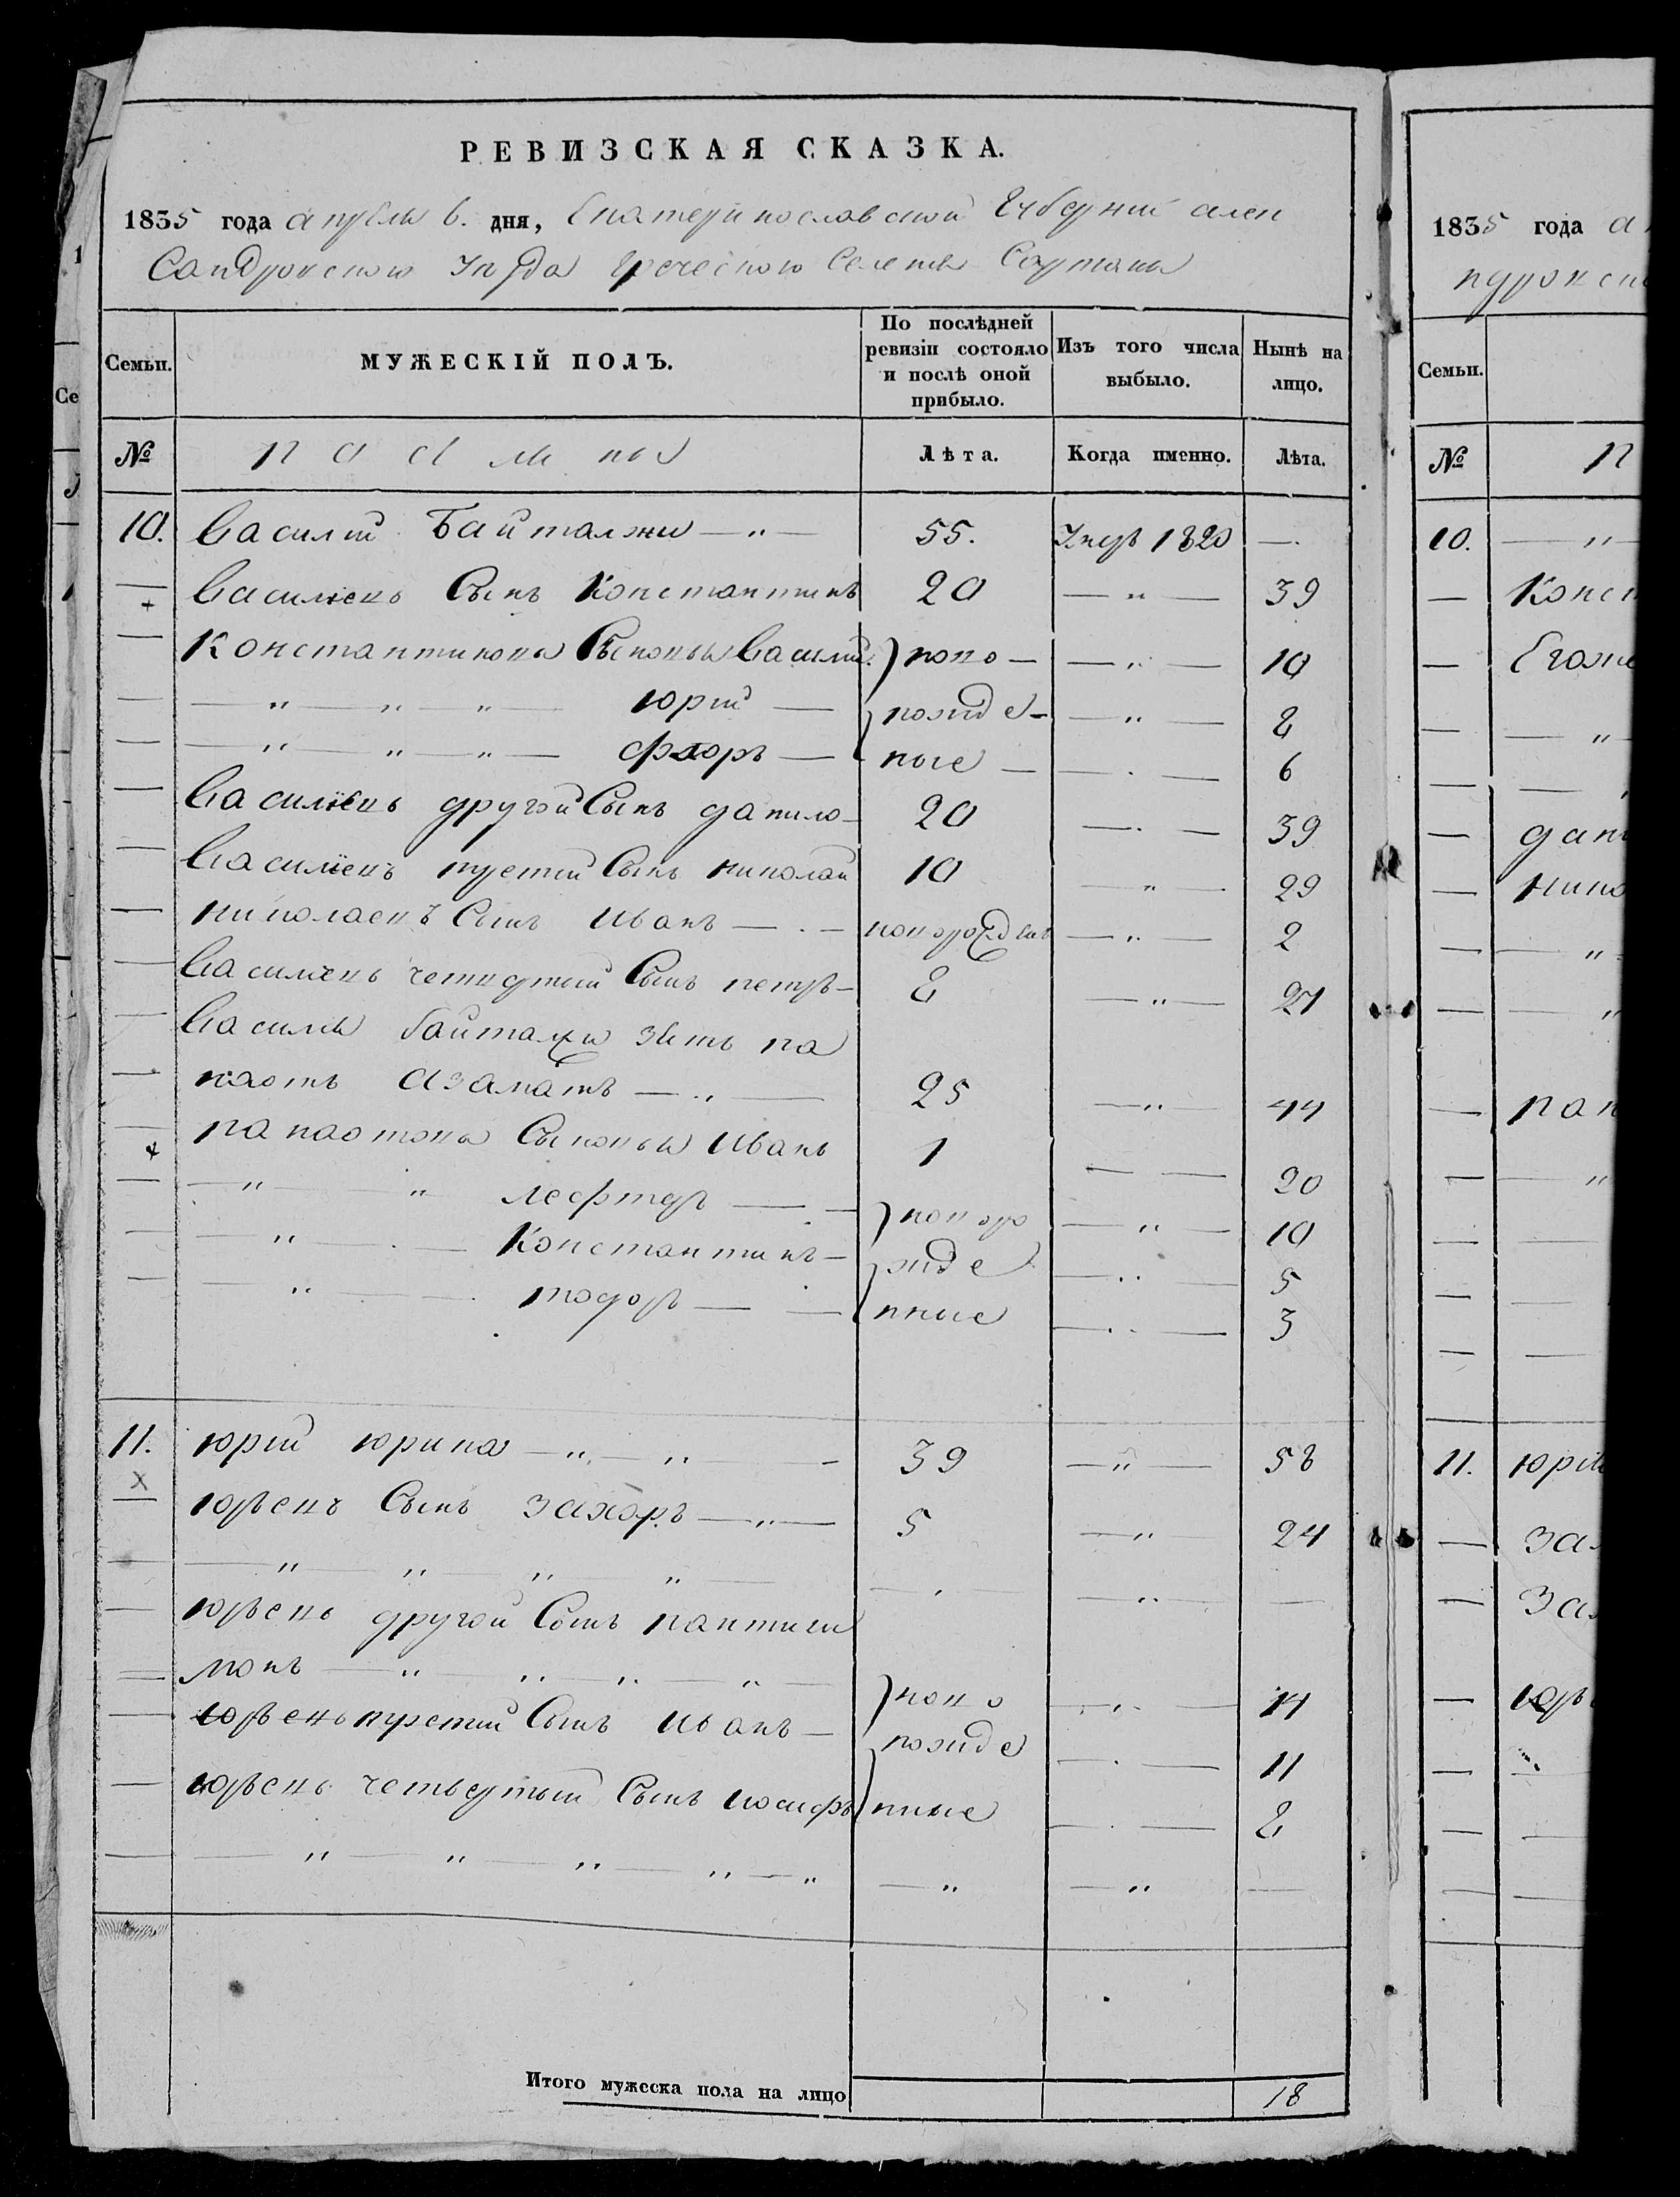 РЕВИЗСКАЯ СКАЗКА.
1835 года апреля 6. дня, Екатеринославской Губернии алек
Сандровского уезда Греческого Селения Сартаны
Семьи. МУЖЕСКІЙ ПОЛЪ. По послѣдней ревизіи состояло и послѣ оной прибыло. Изъ того числа выбыло. Нынѣ на лицо.
№ Лѣта. Когда именно. Лѣта.
10. Василий Байталжи — „ — 55. умръ 1820 — .
— Васильевъ Сынъ Константинъ 20 — „ — 39
— Константиновы Сыновья Василий } ново — — „ — 10
— — „ — „ — „ — юрий — рожде — — „ — 8
— — „ — „ — „ — флоръ — ные — — . — 6
— Васильевъ другой Сынъ данило — 20 — . — 39
— Васильевъ третий Сынъ николай 10 — „ — 29
— николаевъ Сынъ иванъ — . — новорожденъ — „ — 2
— Васильевъ четвертый Сынъ петръ — 8 — „ — 27
— Василия байталжи зять па
— наотъ азаматъ — „ — 25 — „ — 44
— панаотовы Сыновья иванъ 1 — — 20
— — „ — „ лефтеръ — — } новоро — „ — 10
— — „ — . — Константинъ — жде — „ — 5
— — „ — . тодоръ — — нные — „ — 3
11. юрий юрина — „ — „ — 39 — „ — 58
х
— юрьевъ Сынъ захаръ — „ — 5 — „ — 24
— — „ — „ — „ — „ — — . — — „ — —
— юрьевъ другой Сынъ пантили
— монъ — „ — „ — „ — „ — } ново — „ — 14
— юрьевъ третий Сынъ иванъ — рожде — . — 11
— юрьевъ четвертый Сынъ иосифъ нные — . — 8
— — „ — „ — „ — „ — „ — „ — „ —
Итого мужеска пола на лицо 18
1835 года а
Семьи.
№
10. — „ —
— Конст
— Егоже
— — „
— дан
— нико
— — „
— — „
— пан
— — „
11. юрій
— за
— за
— юрь